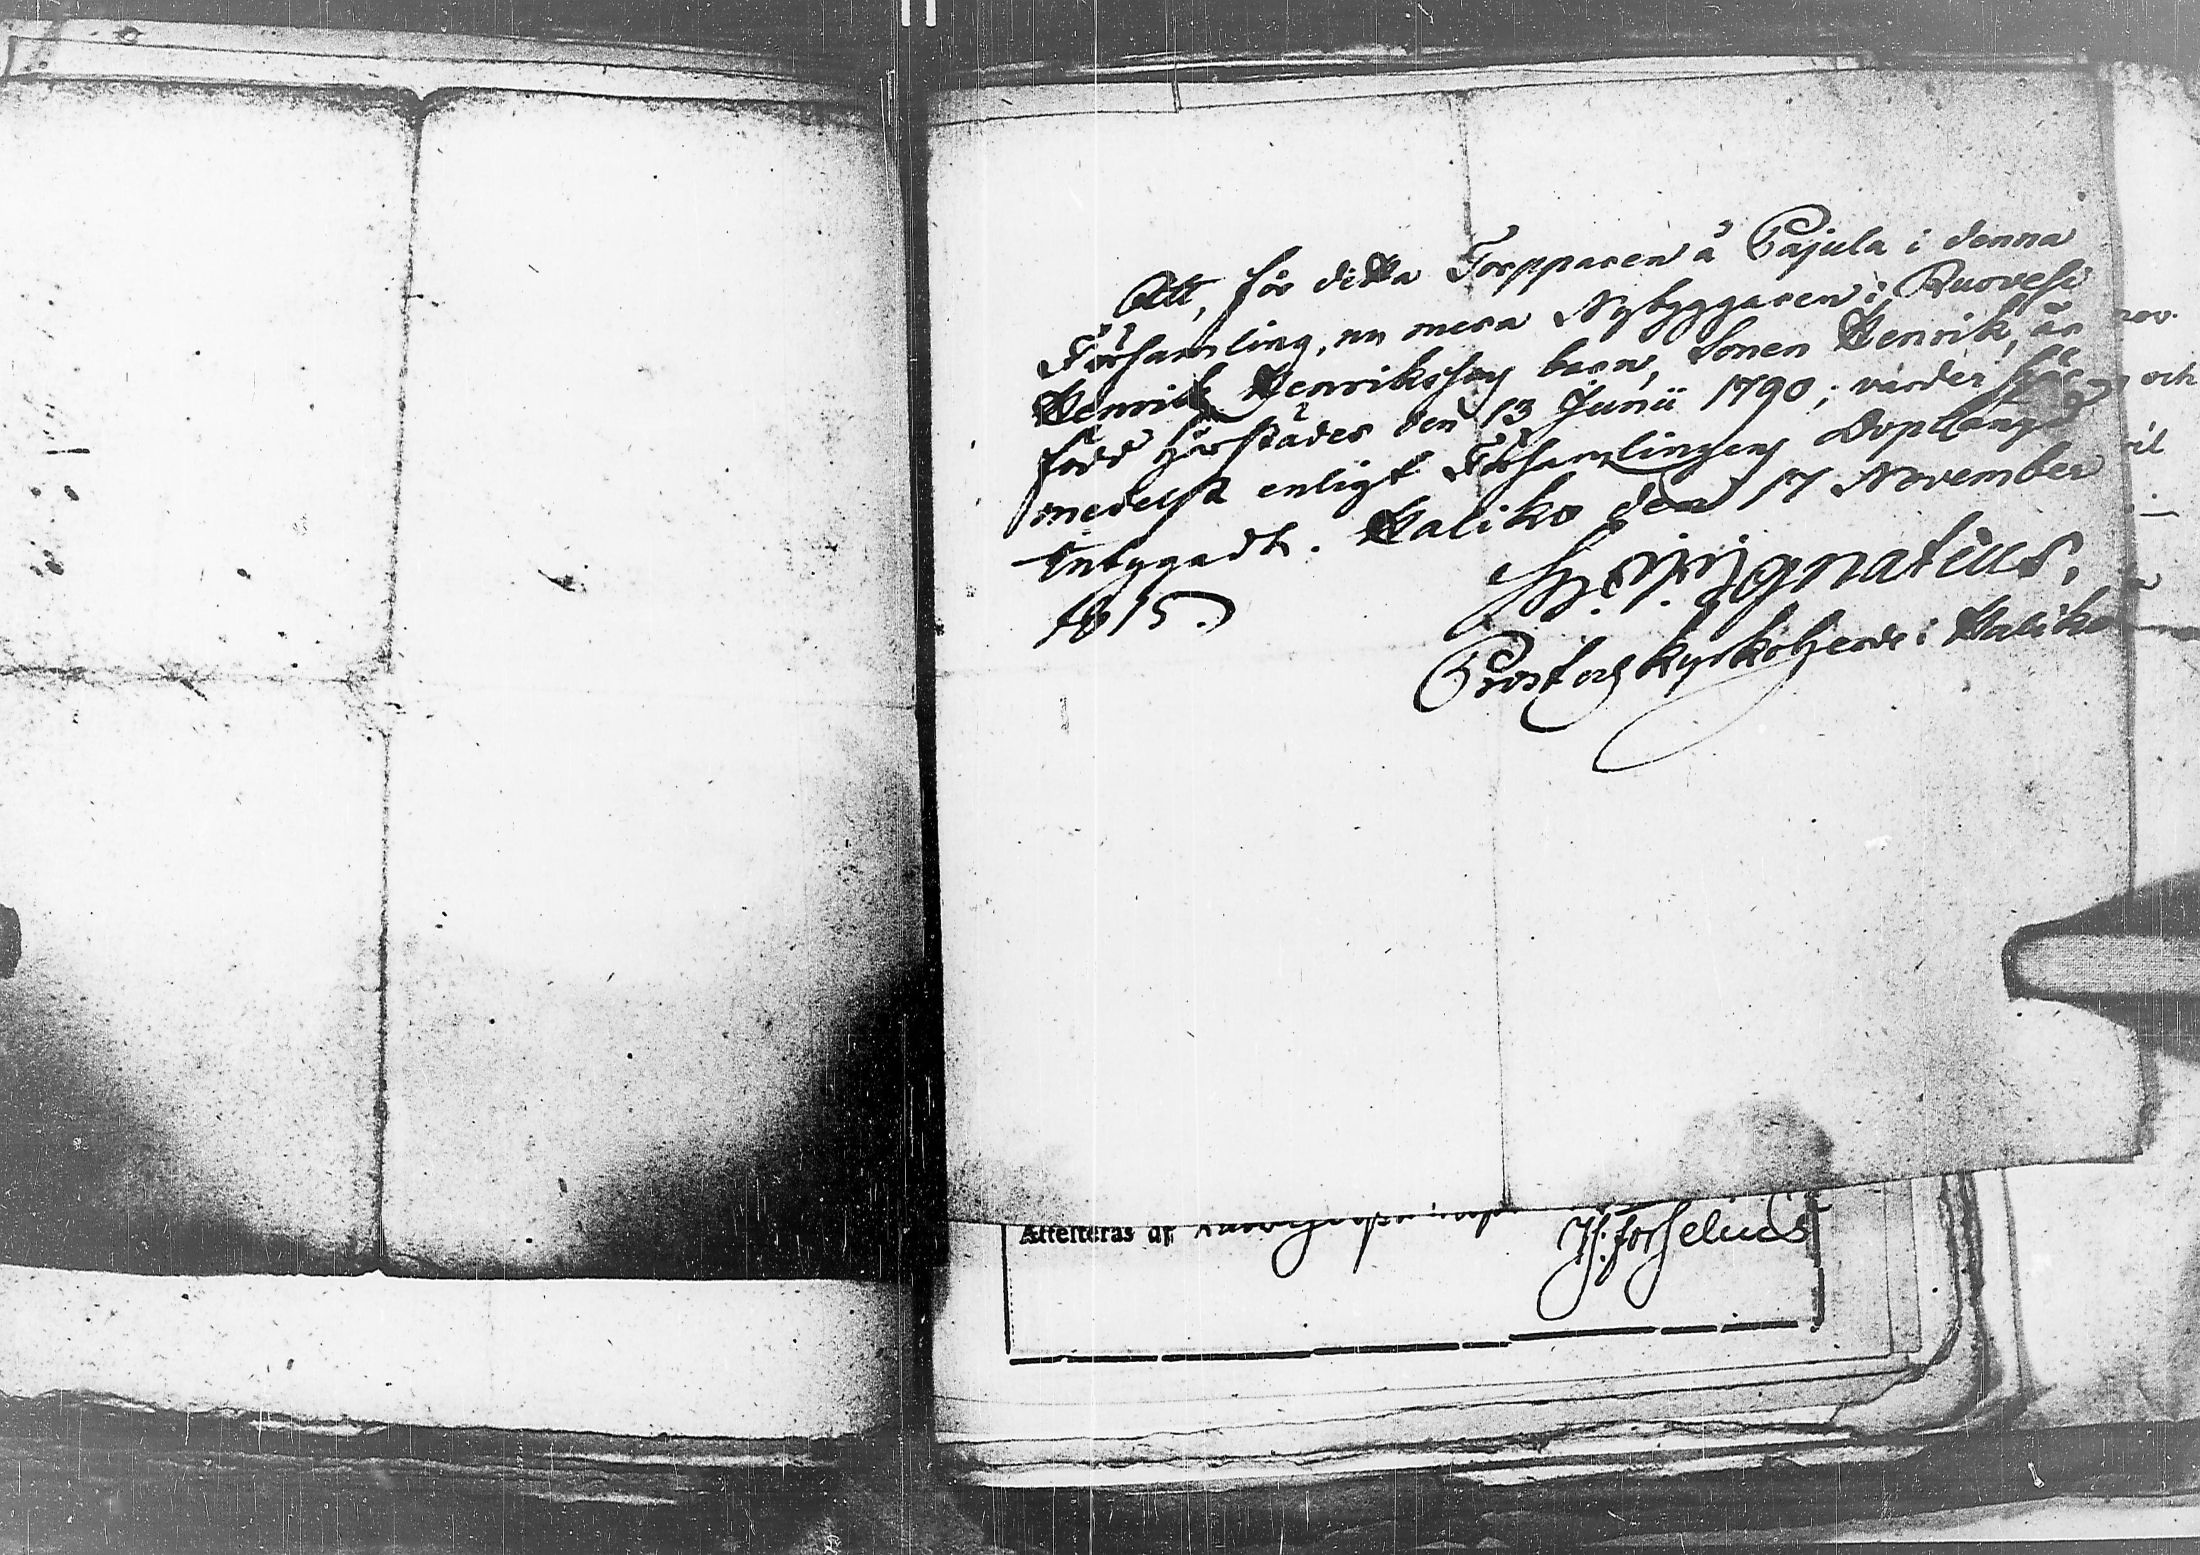 Att, för detta Torpparen å Pajula i denna
Församling, nu mera Nybyggaren i Ruovesi
Henrik Henrikssons barn, Sonen Henrik, är
född härstädes den 13 Junii 1790; varder här
medelst enligt Församlingens Doplängd
intygadt. Haliko den 17 November
1815.
Ignatius.
Prost och Kyrkoherde i Haliko
och
Attesteras af
Js. Forselius